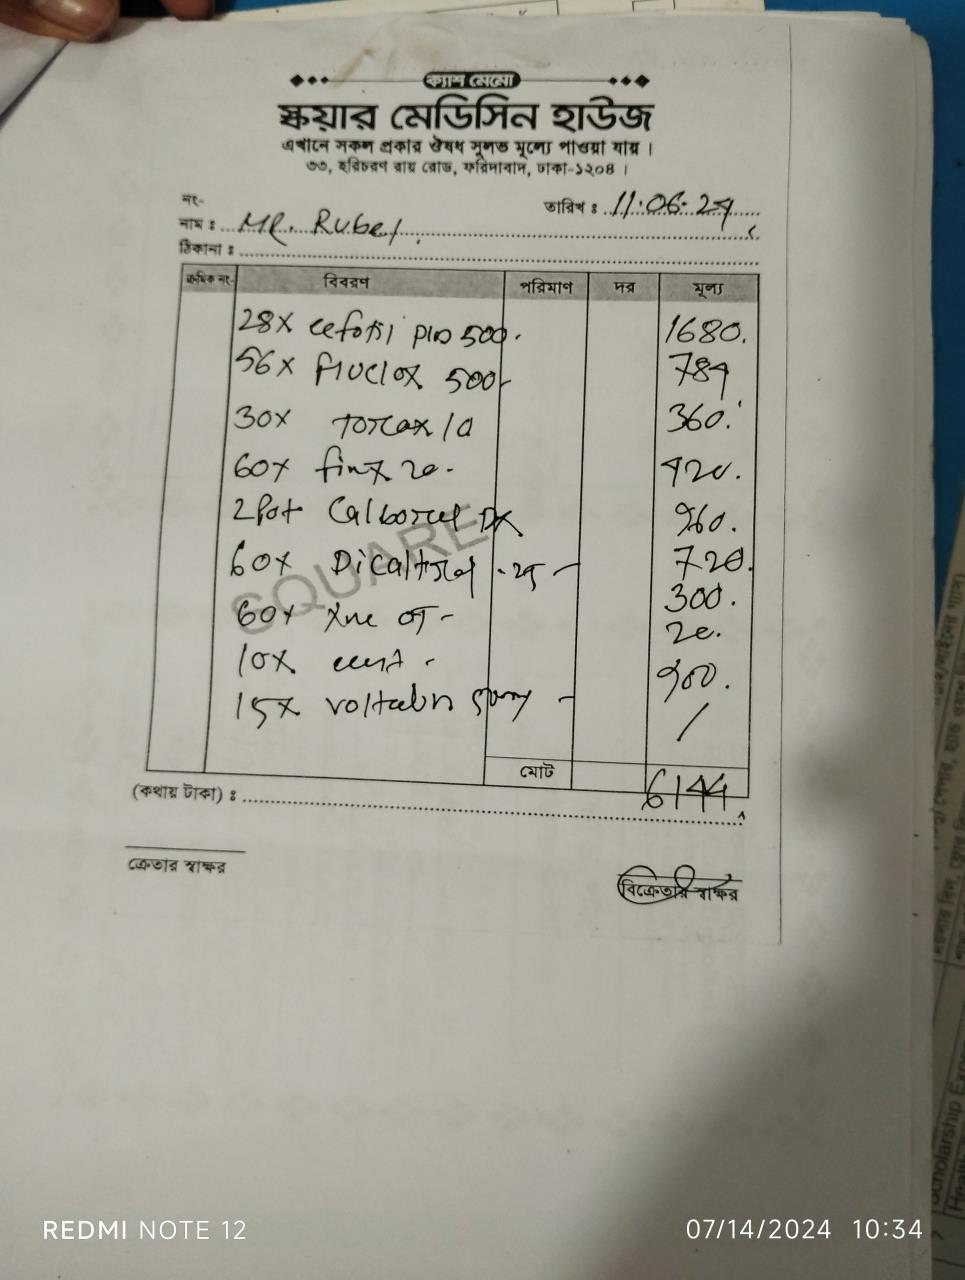 ক্যাশ মেমো
স্কয়ার মেডিসিন হাউজ
এখানে সকল প্রকার ঔষধ সুলভ মূল্যে পাওয়া যায়।
৩৩, হরিচরণ রায় রোড, ফরিদাবাদ, ঢাকা-১২০৪।
নং-
তারিখ : 11.06.24
নাম : MR. Rubel
ঠিকানা :
ক্রমিক নং- বিবরণ পরিমাণ দর মূল্য
28x cefotil plus 500. 1680.
56x fluclox 500 784
30x Torax 10 360.
60x finix 20. 420.
2 Pot Calboral DX 960.
60x Dicaltrol .25 720.
60x 300.
10x 20.
15x voltalin 900.
SQUARE
মোট 6144
(কথায় টাকা) :
ক্রেতার স্বাক্ষর
বিক্রেতার স্বাক্ষর
Scholarship
REDMI NOTE 12
07/14/2024 10:34